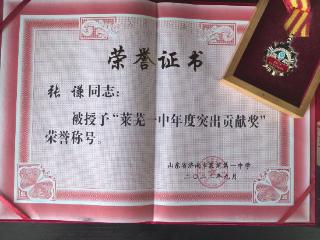 荣誉证书
张 谦同志：
被授予“莱芜一中年度突出贡献奖”
荣誉称号。
山东省济南市莱芜第一中学